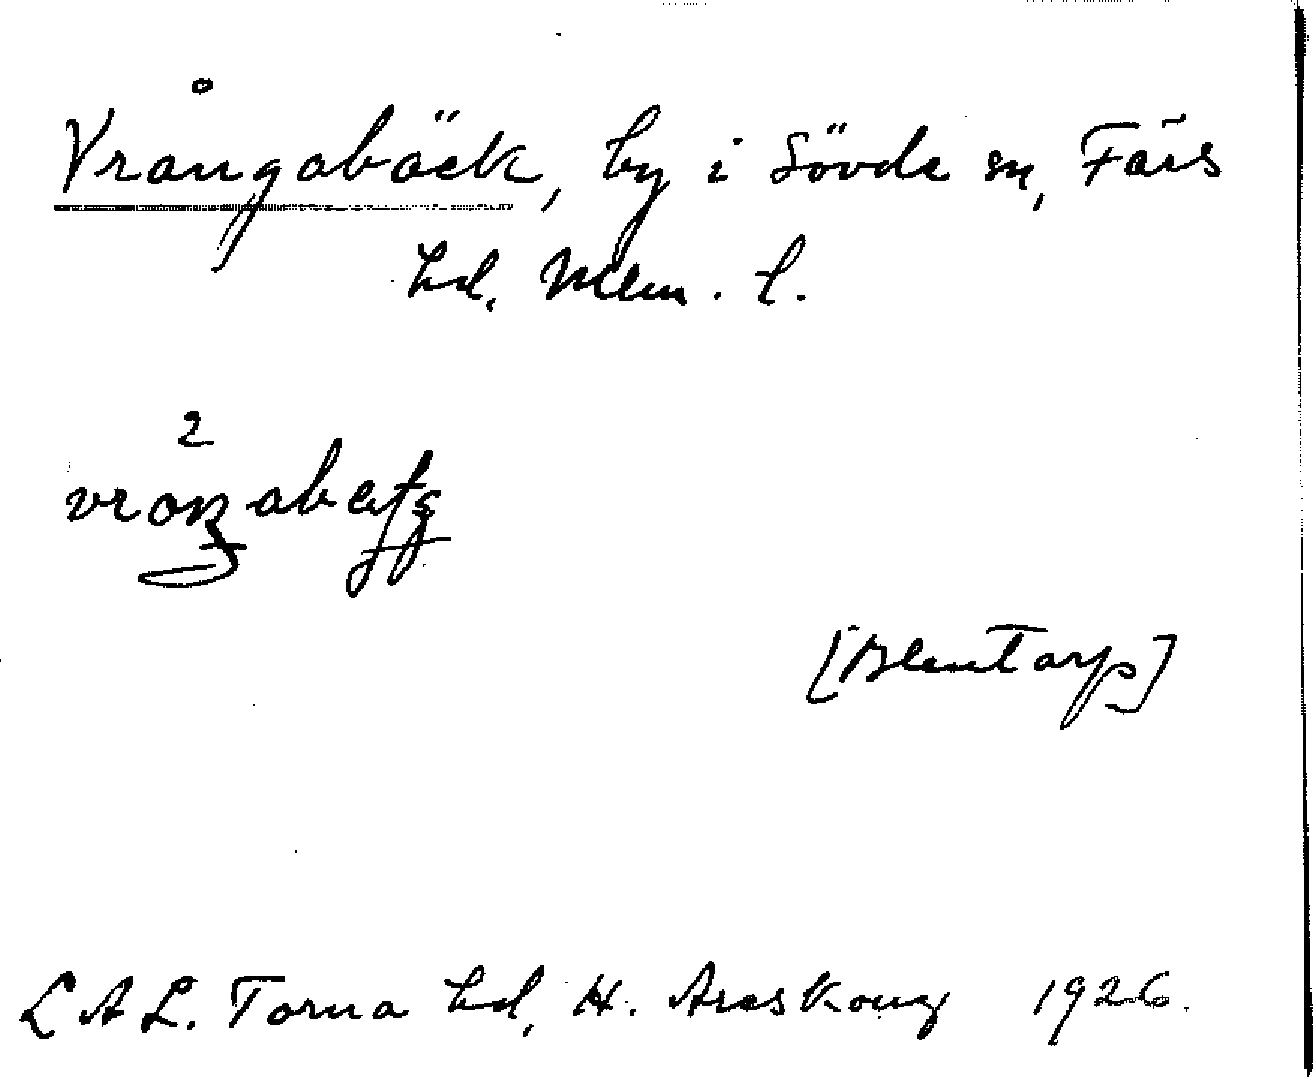 Vrångabäck, by i Sövde sn, Färs
hd, Mlm. l.
2
[Blentarp]
L A L. Torna hd, H. Areskoug 1926.